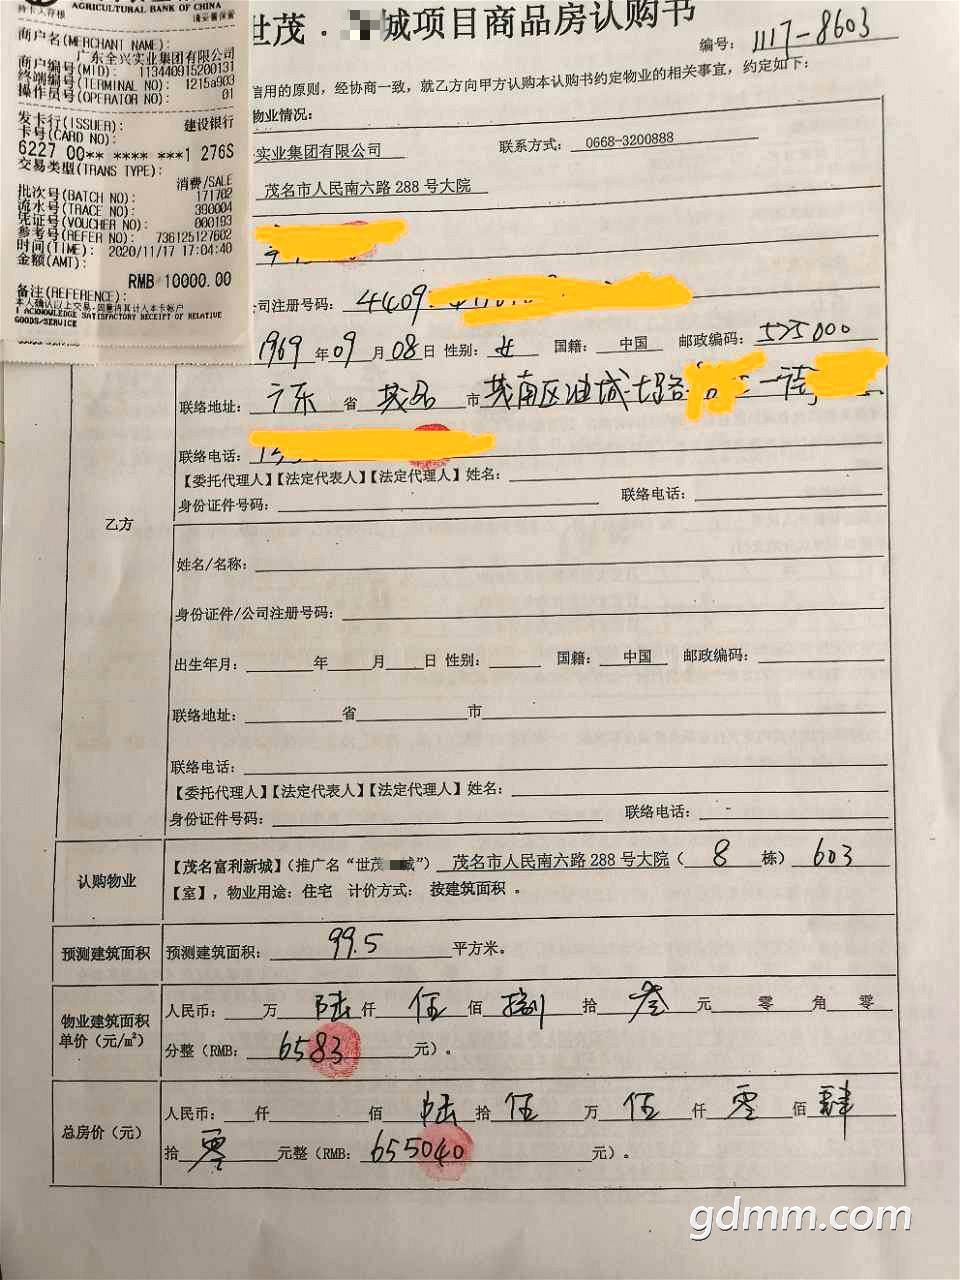 AGRICULTURAL BANK OF CHINA
持卡人存根 请妥善保管
商户名(MERCHANT NAME):
广东全兴实业集团有限公司
商户编号(MID): 113440915200131
终端编号(TERMINAL NO): 1215a903
操作员号(OPERATOR NO): 01
发卡行(ISSUER): 建设银行
卡号(CARD NO):
6227 00** **** ***1 276S
交易类型(TRANS TYPE):
消费/SALE
批次号(BATCH NO): 171702
流水号(TRACE NO): 390004
凭证号(VOUCHER NO): 000193
参考号(REFER NO): 736125127602
时间(TIME): 2020/11/17 17:04:40
金额(AMT):
RMB 10000.00
备注(REFERENCE):
本人确认以上交易,同意将其计入本卡帐户
I ACKNOWLEDGE SATISFACTORY RECEIPT OF RELATIVE
GOODS/SERVICE
世茂·城项目商品房认购书
编号: 1117-8603
信用的原则，经协商一致，就乙方向甲方认购本认购书约定物业的相关事宜，约定如下:
物业情况:
实业集团有限公司 联系方式: 0668-3200888
茂名市人民南六路 288 号大院
公司注册号码: 4409
1969 年 09 月 08 日 性别: 女 国籍: 中国 邮政编码: 525000
联络地址: 广东 省 茂名 市 茂南区油城七路 一街
联络电话:
【委托代理人】【法定代表人】【法定代理人】姓名:
身份证件号码: 联络电话:
乙方
姓名/名称:
身份证件/公司注册号码:
出生年月: 年 月 日 性别: 国籍: 中国 邮政编码:
联络地址: 省 市
联络电话:
【委托代理人】【法定代表人】【法定代理人】姓名:
身份证件号码: 联络电话:
认购物业 【茂名富利新城】(推广名“世茂城”) 茂名市人民南六路 288 号大院( 8 栋) 603
【室】，物业用途: 住宅 计价方式: 按建筑面积 。
预测建筑面积 预测建筑面积: 99.5 平方米。
物业建筑面积单价(元/㎡) 人民币: 万 陆 仟 伍 佰 捌 拾 叁 元 零 角 零
分整(RMB: 6583 元)。
总房价(元) 人民币: 仟 佰 陆 拾 伍 万 伍 仟 零 佰 肆
拾 零 元整(RMB: 655040 元)。
gdmm.com